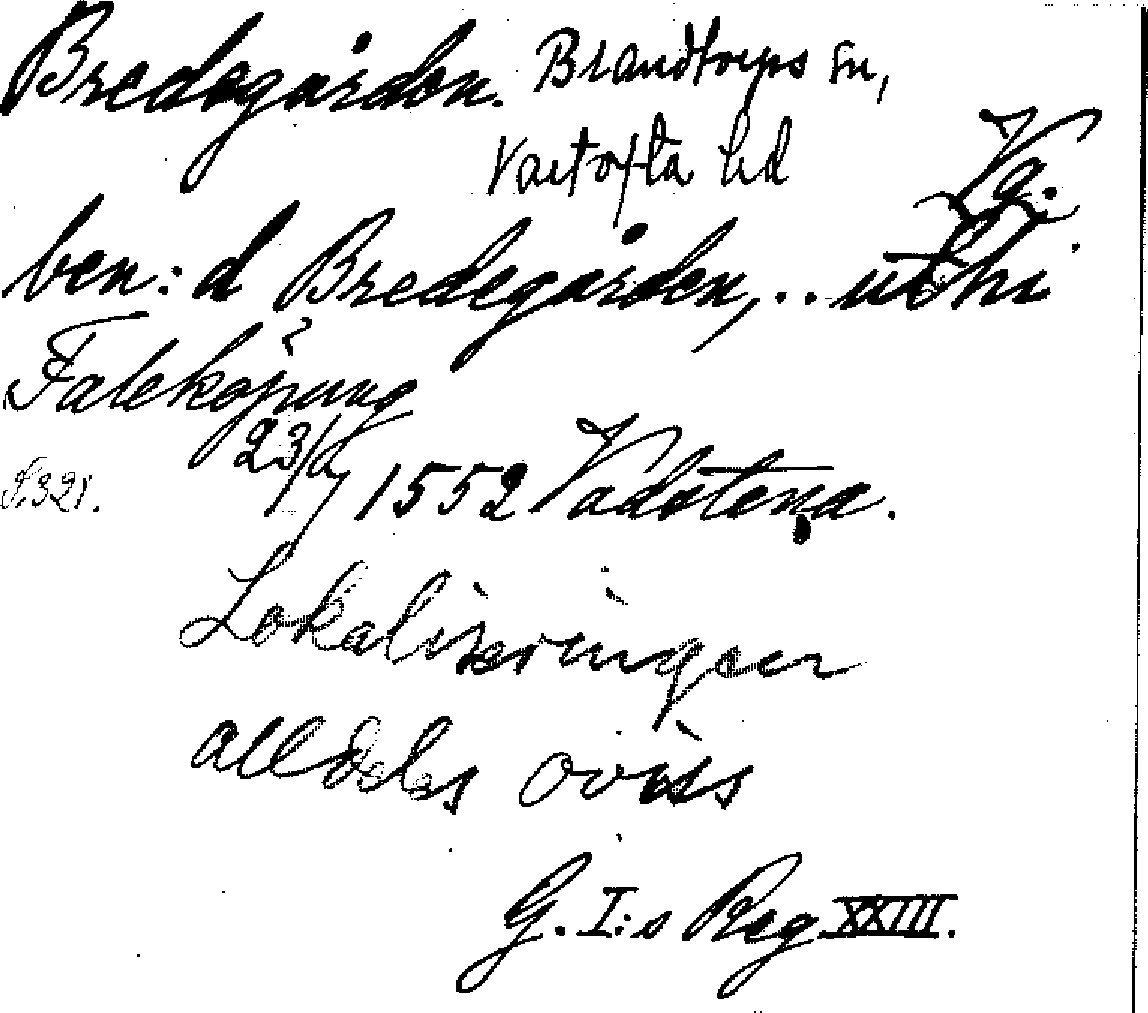 Bredegården. Brandtorps sn,
Vartofta hd Vg.
ben:d Bredegården,.. uthi
Faleköpung
S.321. 23/ 1552 Vadstena.
Lokaliseringen
alldeles oviss
G.I:s Reg XXIII.